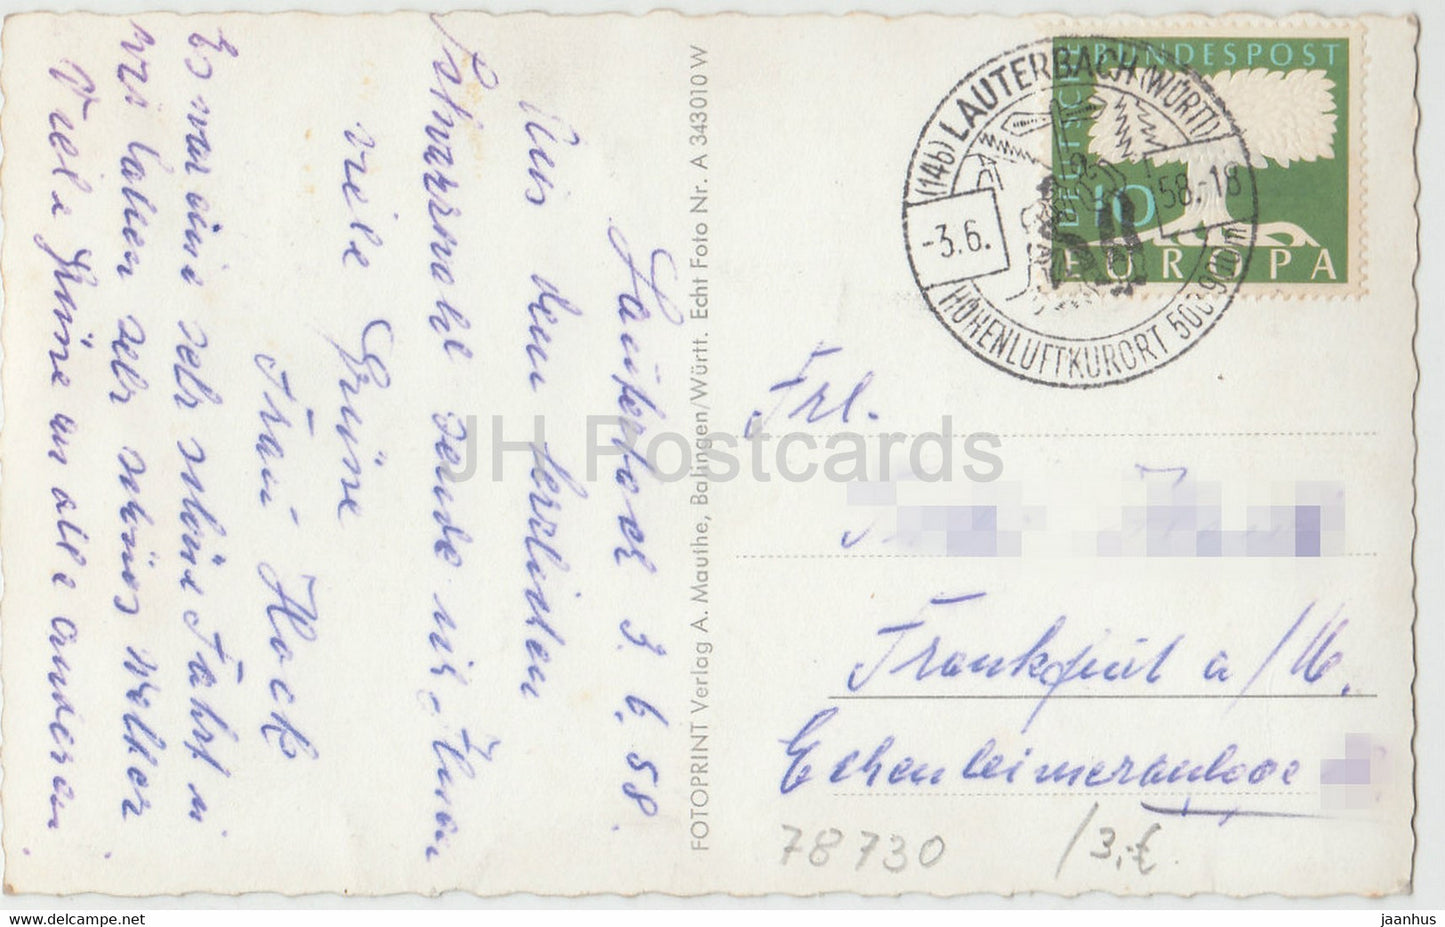 Lauterbach 3. 6. 58.
Aus dem herrlichen
Schwarzwald sende ich Ihnen
viele Grüsse
Frau Hock
Es war eine sehr schöne Fahrt u.
wir haben sehr schönes Wetter
Viele Grüsse an alle anderen.
FOTOPRINT Verlag A. Mauthe, Balingen/Württ. Echt Foto Nr. A 343010 W
DEUTSCHE BUNDESPOST
10
EUROPA
(14b) LAUTERBACH (WÜRTT)
-3.6.
58.-18
HÖHENLUFTKURORT
Frl.
Frankfurt a/M.
78730
/3,-€
JH Postcards
www.delcampe.net
jaanhus